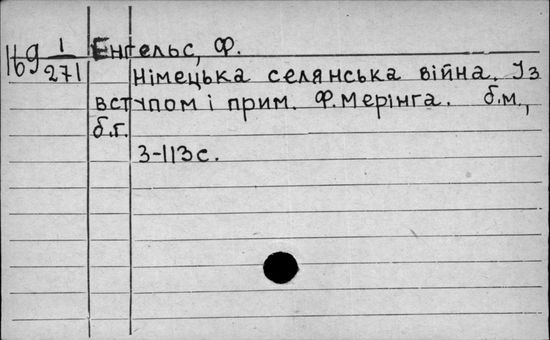 169 1/271
Енгельс, Ф.
Німецька селянська війна. Із
вступом і прим. Ф.Мерінга. б.м.,
б.г.
3-113 с.